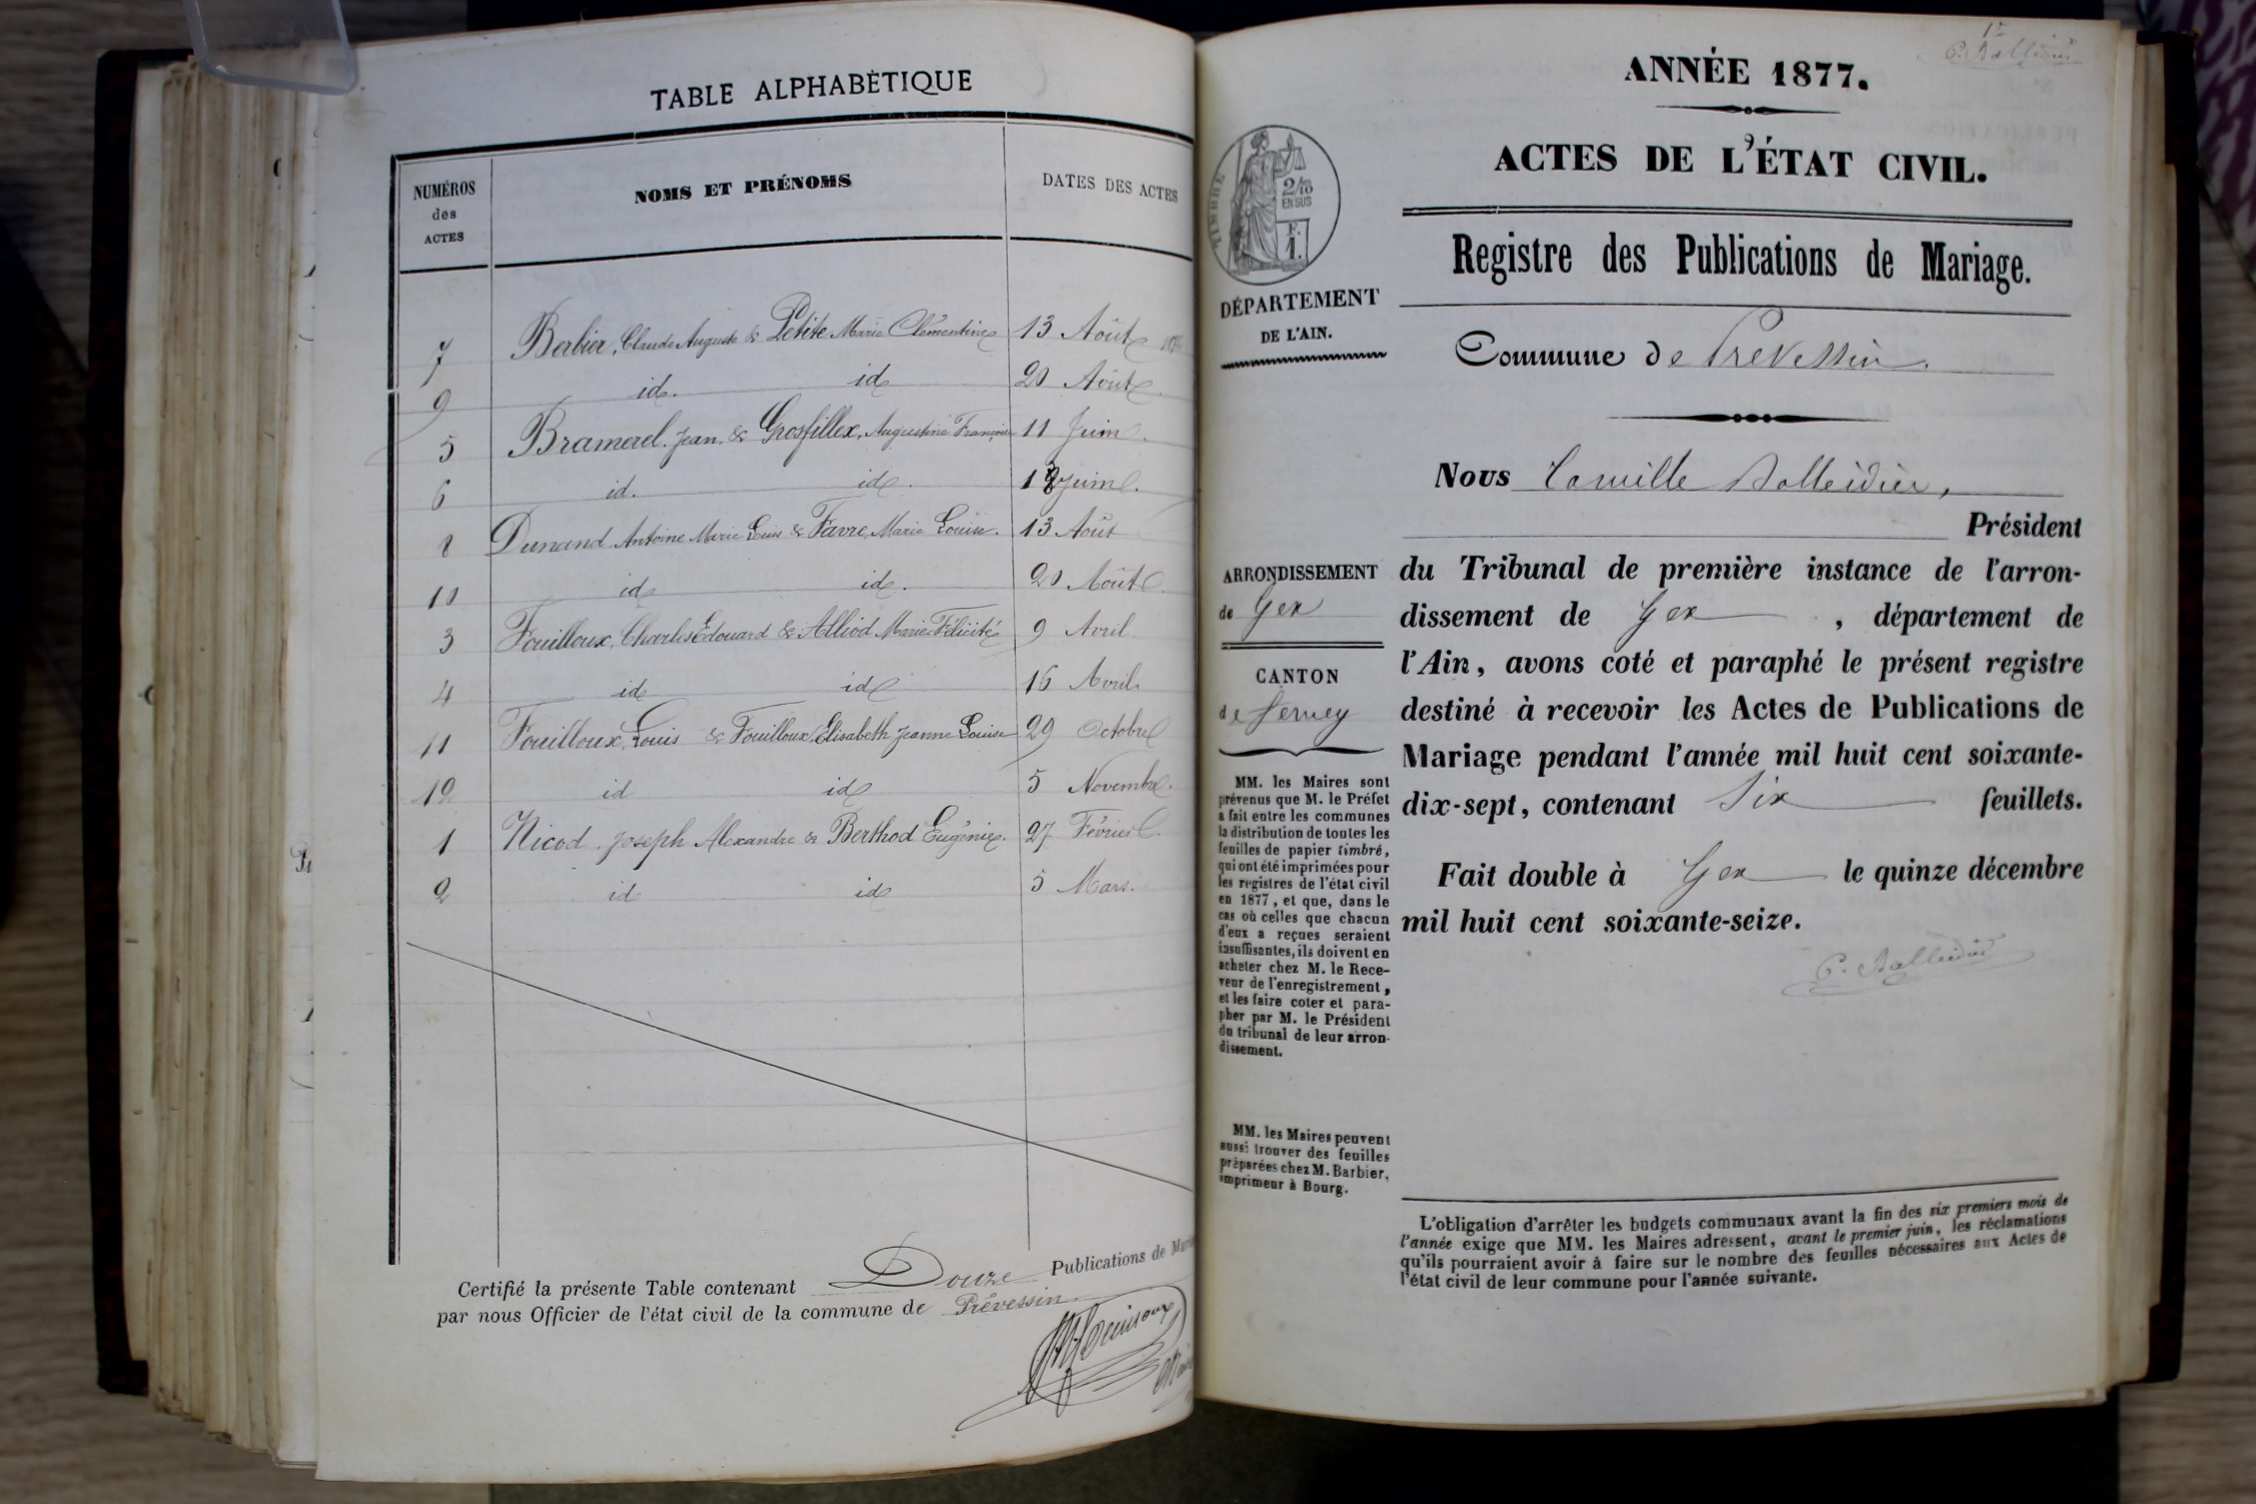 TABLE ALPHABÉTIQUE
NUMÉROS
des
ACTES
NOMS ET PRÉNOMS
DATES DES ACTES
7 Berbier, Claude Auguste & Petite Marie Clémentine 13 Août
9 id. id 20 Août
5 Bramerel Jean, & Grosfillex, Augustine Françoise 11 Juin
6 id. id. 18 Juin.
8 Dunand Antoine Marie Louis & Favre, Marie Louise. 13 Août
10 id id. 20 Août
3 Fouilloux, Charles Edouard & Alliod Marie Félicité 9 Avril
4 id id 16 Avril
11 Fouilloux, Louis & Fouilloux, Elisabeth Jeanne Louise 29 Octobre
12 id id 5 Novembre.
1 Nicod Joseph Alexandre & Berthod Eugénie. 27 Février
2 id id 5 Mars.
Certifié la présente Table contenant Douze Publications de
par nous Officier de l'état civil de la commune de Prévessin
1er
ANNÉE 1877.
ACTES DE L'ÉTAT CIVIL.
TIMBRE
2/10
EN SUS
F.
1.
Registre des Publications de Mariage.
DÉPARTEMENT
DE L'AIN.
Commune de Prevessin
Nous Camille Balleidier,
Président
du Tribunal de première instance de l'arron-
dissement de Gex , département de
l'Ain, avons coté et paraphé le présent registre
destiné à recevoir les Actes de Publications de
Mariage pendant l'année mil huit cent soixante-
dix-sept, contenant Six feuillets.
Fait double à Gex le quinze décembre
mil huit cent soixante-seize.
C. Balleidier
ARRONDISSEMENT
de Gex
CANTON
de Ferney
MM. les Maires sont
prévenus que M. le Préfet
a fait entre les communes
la distribution de toutes les
feuilles de papier timbré,
qui ont été imprimées pour
les registres de l'état civil
en 1877, et que, dans le
cas où celles que chacun
d'eux a reçues seraient
insuffisantes, ils doivent en
acheter chez M. le Rece-
veur de l'enregistrement,
et les faire coter et para-
pher par M. le Président
du tribunal de leur arron-
dissement.
MM. les Maires peuvent
aussi trouver des feuilles
préparées chez M. Barbier,
imprimeur à Bourg.
L'obligation d'arrêter les budgets communaux avant la fin des six premiers mois de
l'année exige que MM. les Maires adressent, avant le premier juin, les réclamations
qu'ils pourraient avoir à faire sur le nombre des feuilles nécessaires aux Actes de
l'état civil de leur commune pour l'année suivante.